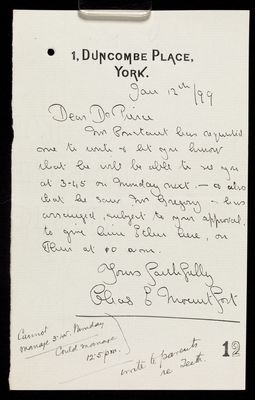 1, DUNCOMBE PLACE,
YORK.
Jan 12th/99
Dear Dr Pierce
Mr Constant has requested
me to write & let you know
that he will be able to see you
at 3.45 on Monday next. — & also
that he saw Mr Gregory — has
arranged, subject to your approval,
to give him Ether here, on
Thurs at 10 a.m.
Yours faithfully
Chas E Mountfort
Cannot
manage 3.45 Monday
Could manage
12.5 p.m.
write to parents
re Teeth.
12